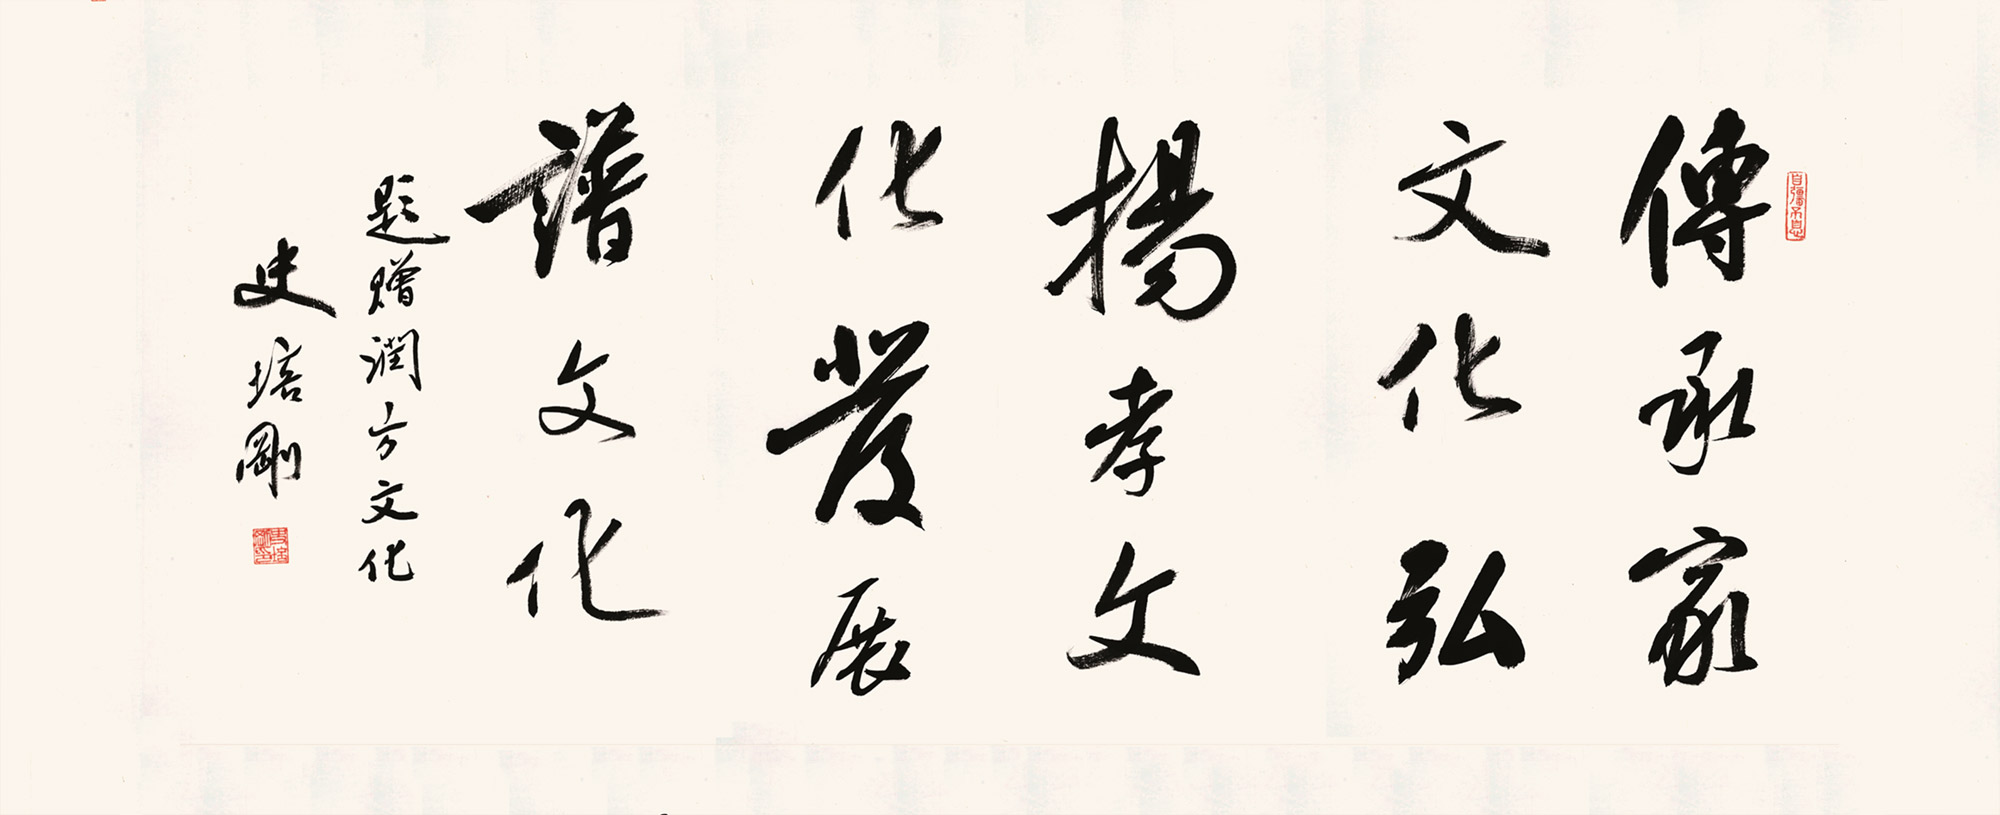 自彊不息
傳承家
文化弘
揚孝文
化發展
譜文化
題贈潤方文化
史培剛